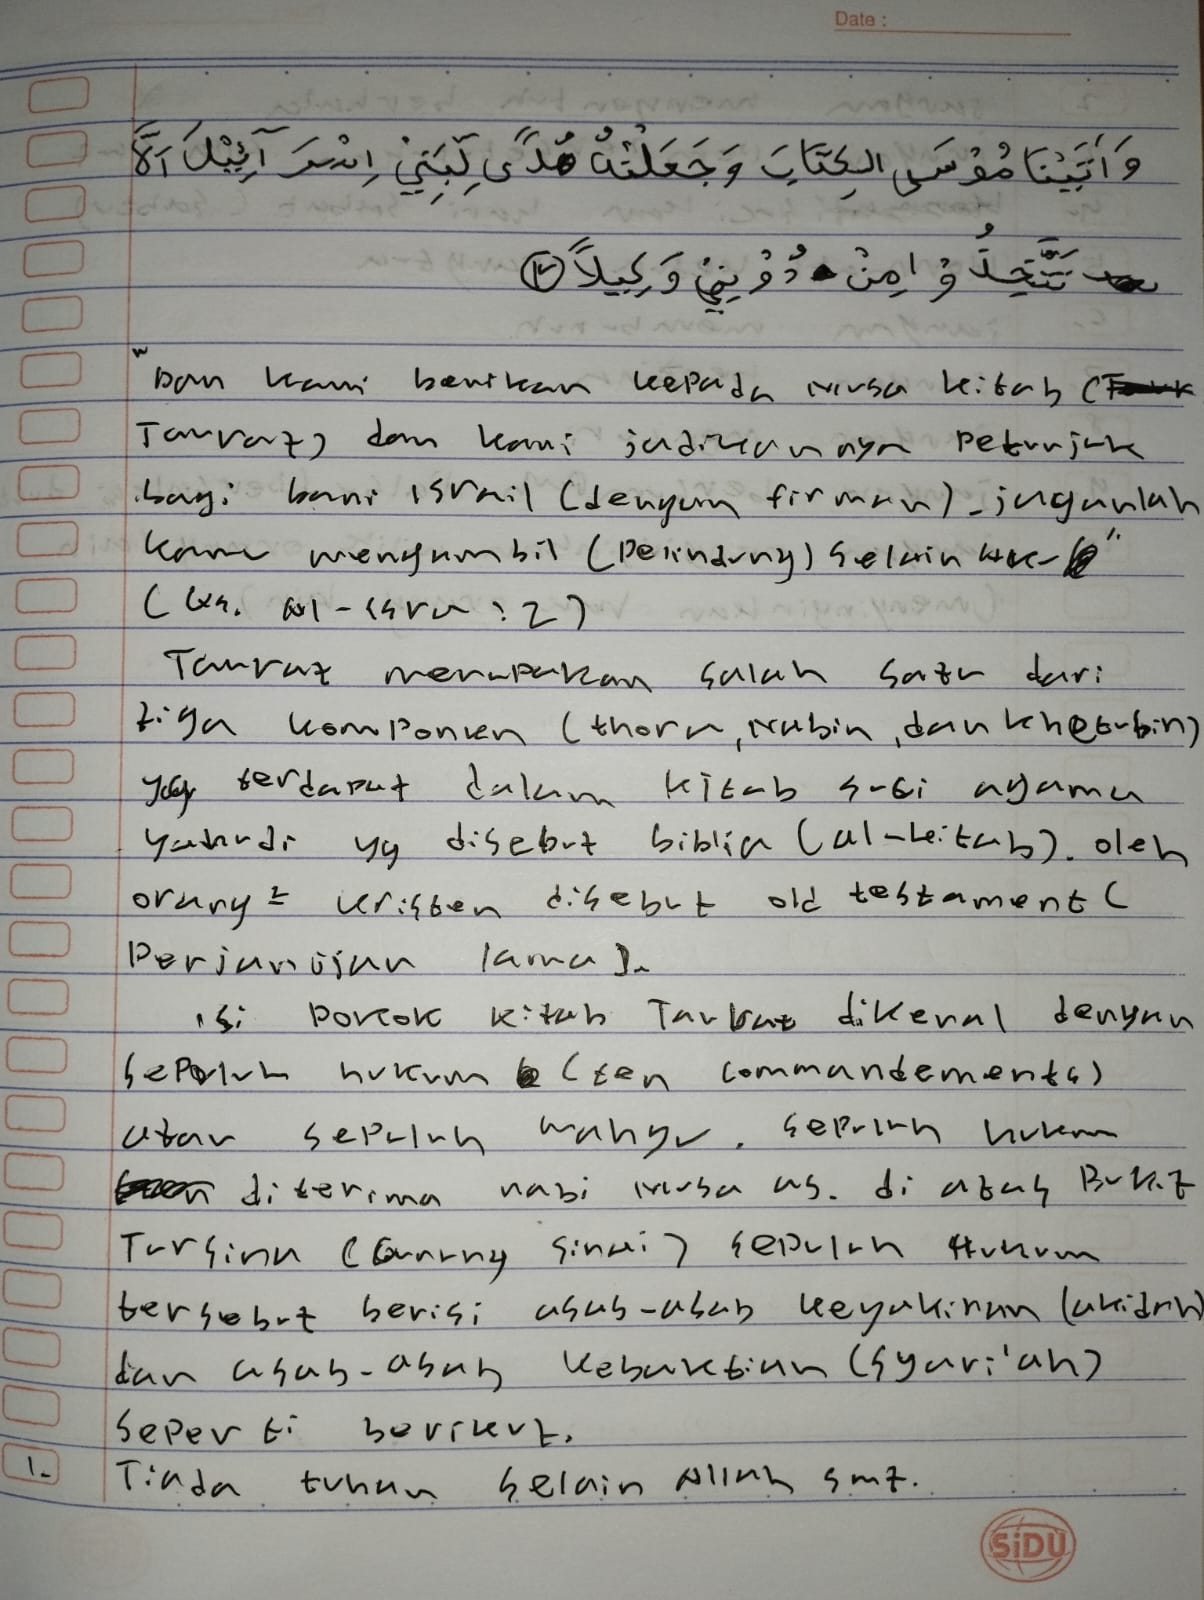 Date :
وَاٰتَيْنَا مُوْسَى الْكِتَابَ وَجَعَلْنٰهُ هُدًى لِّبَنِيْ اِسْرَآئِيْلَ اَلَّا
تَتَّخِذُوْا مِنْ دُوْنِيْ وَكِيْلًا ٢
"Dan kami berikan kepada Musa kitab (
Taurat) dan kami jadikannya Petunjuk
bagi bani israil (dengan firman). janganlah
kamu mengambil (Pelindung) selain
(Qs. Al-isra : 2)
Taurat merupakan salah satu dari
tiga komponen (thora, Nabin, dan khetubin)
yg terdapat dalam kitab suci agama
yahudi yg disebut biblia (al-kitab). oleh
orang² kristen disebut old testament (
Perjanjian lama).
isi pokok kitab Taurat dikenal dengan
sepuluh hukum (ten commandements)
atau sepuluh wahyu. sepuluh hukum
diterima nabi musa as. di atas Bukit
Tursina (Gunung sinai) sepuluh Hukum
tersebut berisi asas-asas keyakinan (akidah)
dan asas-asas kebaktian (syari'ah)
seperti berikut.
1. Tiada tuhan selain Allah swt.
SiDU